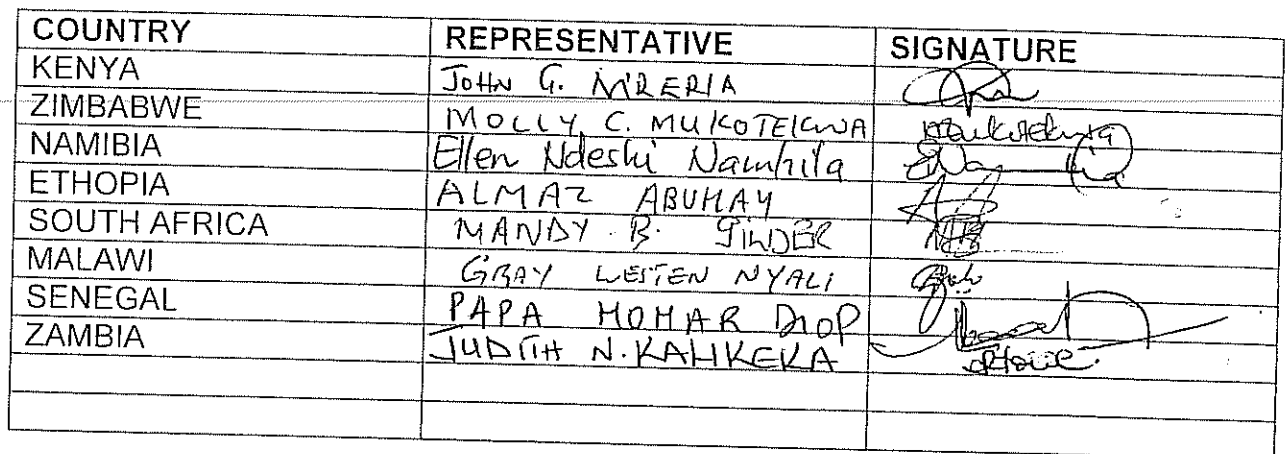 COUNTRY REPRESENTATIVE SIGNATURE
KENYA JOHN G. MRERIA
ZIMBABWE MOLLY C. MUKOTEKWA
NAMIBIA Ellen Ndeshi Namhila
ETHOPIA ALMAZ ABUHAY
SOUTH AFRICA MANDY B. GILDER
MALAWI GRAY WESTEN NYALI
SENEGAL PAPA MOMAR DIOP
ZAMBIA JUDITH N. KALIKEKA